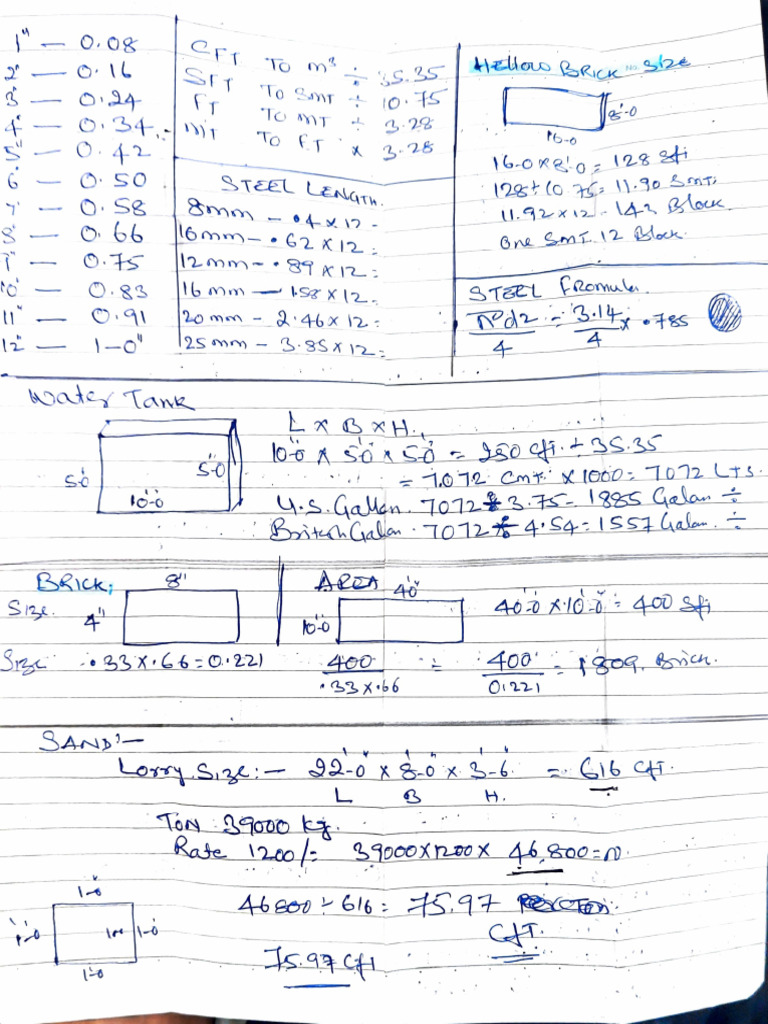 1" — 0.08
2" — 0.16
3" — 0.24
4" — 0.34
5" — 0.42
6" — 0.50
7" — 0.58
8" — 0.66
0.75
10" — 0.83
11" — 0.91
12" — 1-0"
CFT TO m³ ÷ 35.35
SFT TO SMT ÷ 10.75
FT TO MT ÷ 3.28
MT TO FT × 3.28
STEEL LENGTH.
8mm — .4 × 12 =
10mm — .62 × 12 =
12mm — .89 × 12 =
16mm — 1.58 × 12 =
20mm — 2.46 × 12 =
25mm — 3.85 × 12 =
HELLOW BRICK No. SIZE
8'-0
16-0
16-0 × 8'-0 = 128 Sft
128 ÷ 10.75 = 11.90 Smt
11.92 × 12 - 143 Block.
One Smt. 12 Block.
STEEL FROMULA
3.14/4 × .785
Water Tank
5'0
5'-0
10-0
L × B × H.
10-0 × 5-0 × 5-0 = 250 Cft ÷ 35.35
= 7.072 Cmt. × 1000 = 7072 LTS.
U.S. Gallon. 7072 ÷ 3.75 = 1885 Galan ÷
British Galan. 7072 ÷ 4.54 = 1557 Galan. ÷
BRICK;
Size. 8" 4"
Size .33 × .66 = 0.221
AREA
40'
10-0
40-0 × 10-0 = 400 Sft
400/.33×.66 = 400/0.221 = 1809. Brick.
SAND:—
Lorry Size:— 22-0 × 8-0 × 3-6 = 616 Cft.
L B H.
Ton 39000 kg.
Rate 1200/= 39000×1200× 46,800=
46800 ÷ 616 = 75.97
CFT.
75.97 Cft
1-0
1-0
1-0
1-0